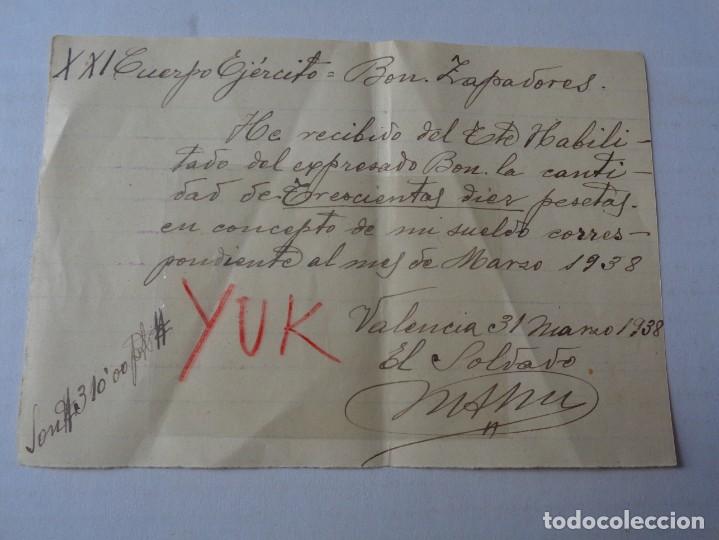 XXI Cuerpo Ejército = Bon. Zapadores.
He recibido del Ete Habili-
tado del expresado Bon. la canti-
dad de Trescientas diez pesetas.
en concepto de mi sueldo corres-
pondiente al mes de Marzo 1938
Valencia 31 Marzo 1938
El Soldado
Son #310'00 pts #
YUK
todocoleccion.net